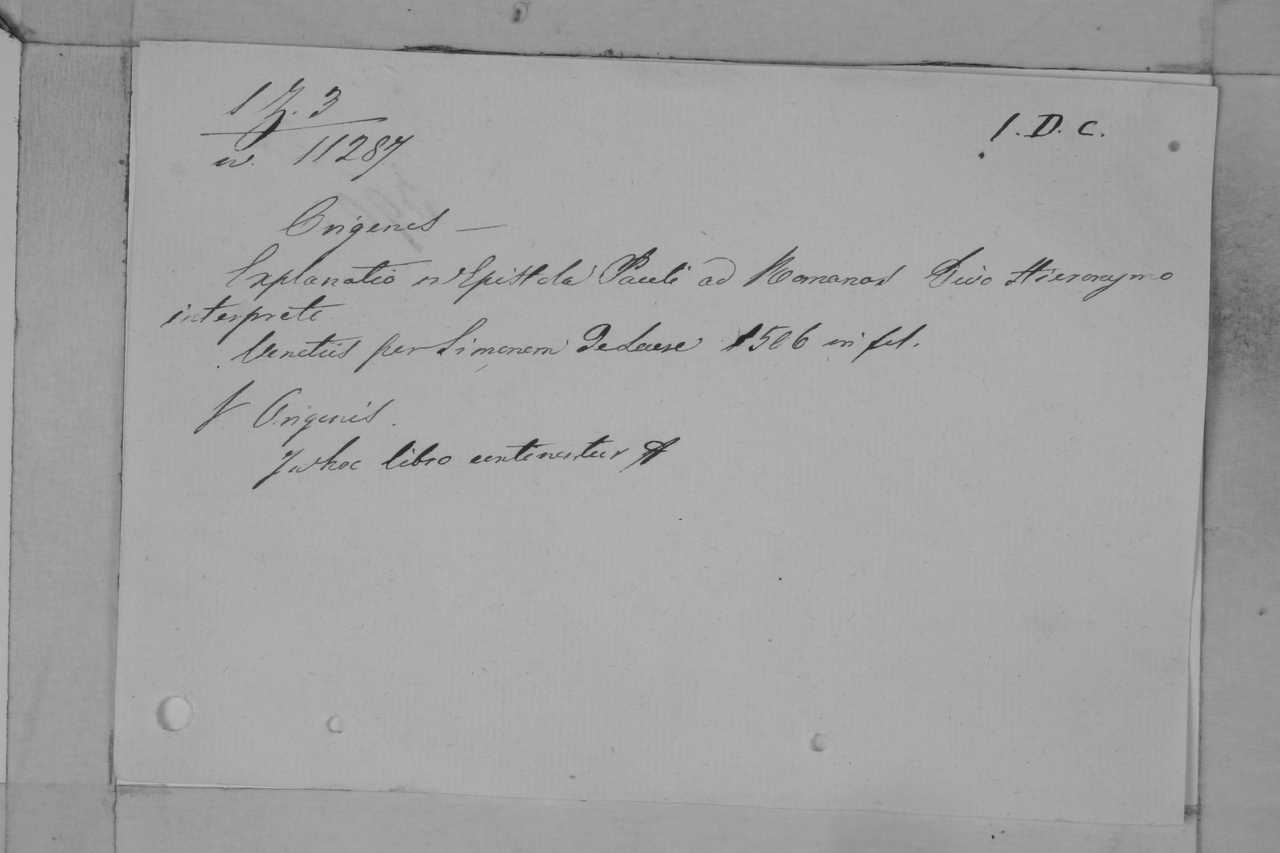 1 Z. 3
1. D. C.
w. 11287
Origenes —
Explanatio in Epistola Pauli ad Romanos Divo Hieronymo
interprete
Venetiis per Simonem De Luere 1506 in fol.
V Origenis.
In hoc libro continentur